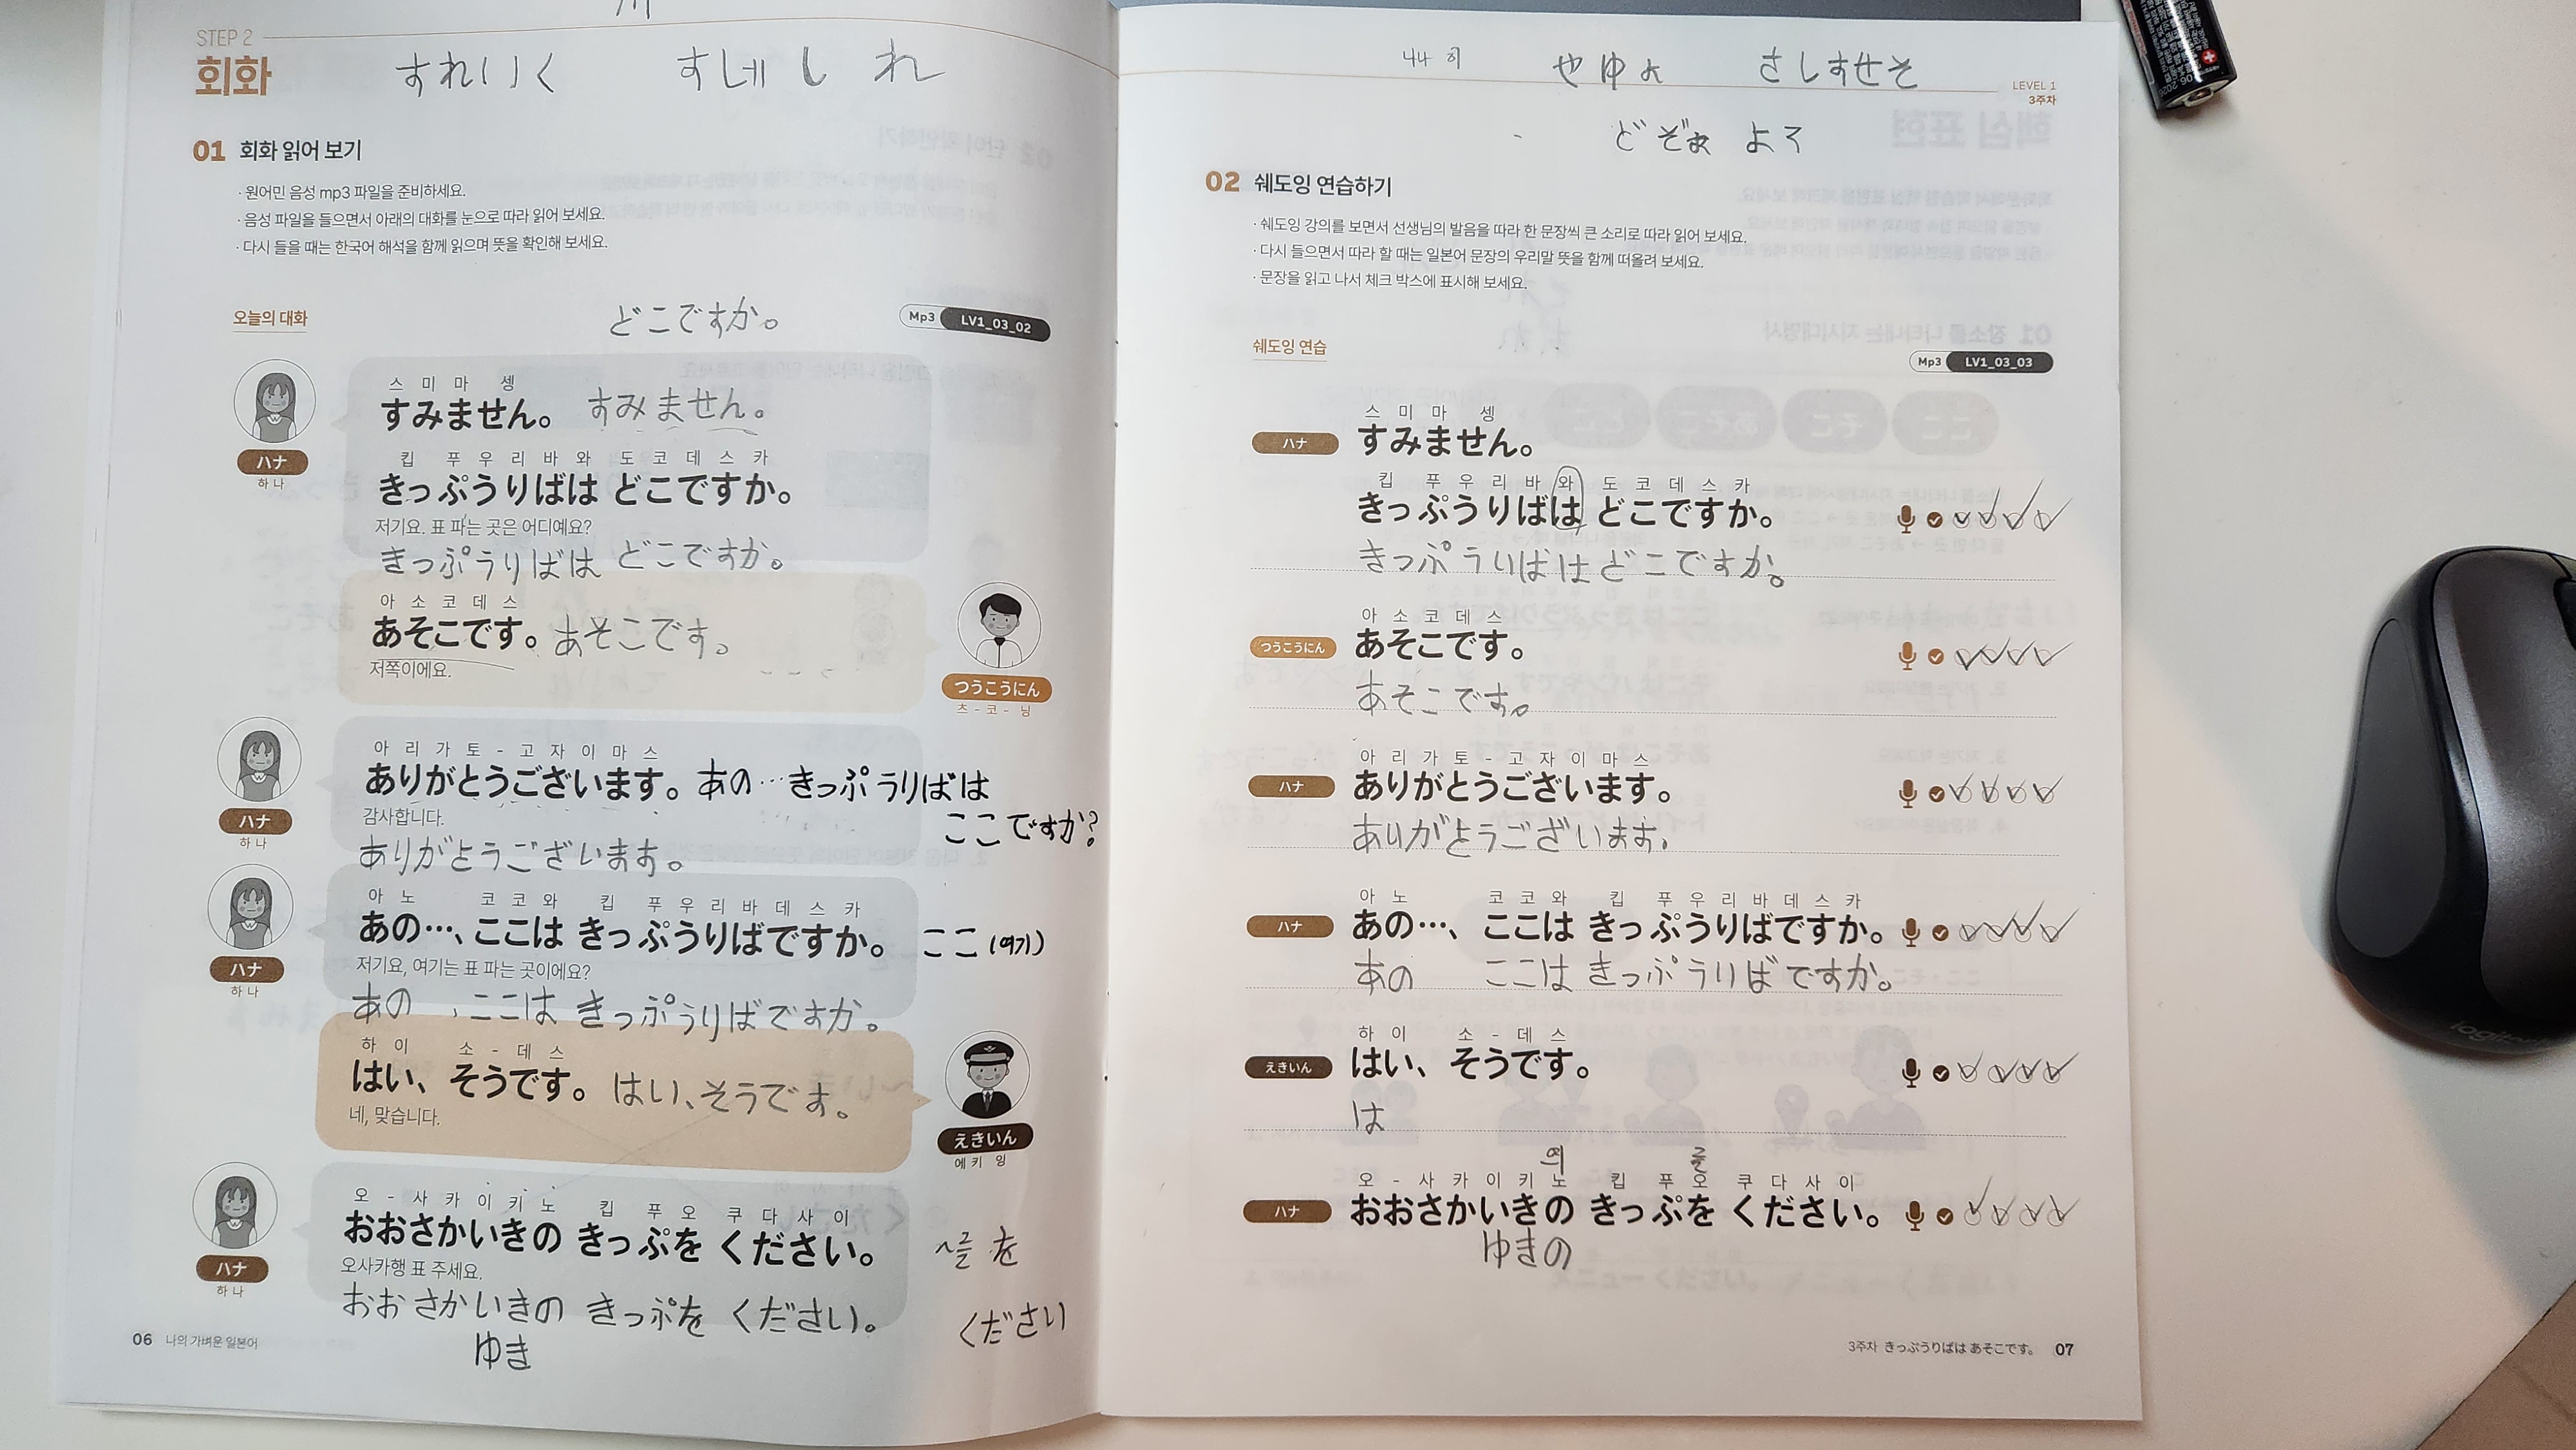 STEP 2
회화
すれいく すし れ
01 회화 읽어 보기
· 원어민 음성 mp3 파일을 준비하세요.
· 음성 파일을 들으면서 아래의 대화를 눈으로 따라 읽어 보세요.
· 다시 들을 때는 한국어 해석을 함께 읽으며 뜻을 확인해 보세요.
どこですか。
오늘의 대화
Mp3 LV1_03_02
스 미 마 셍
すみません。 すみません。
킵 푸 우 리 바 와 도 코 데 스 카
きっぷうりばは どこですか。
ハナ
하 나
저기요. 표 파는 곳은 어디예요?
きっぷうりばは どこですか。
아 소 코 데 스
あそこです。 あそこです。
저쪽이에요.
つうこうにん
츠 - 코 - 닝
아 리 가 토 - 고 자 이 마 스
ありがとうございます。 あの…きっぷうりばは
ここですか?
ハナ
하 나
감사합니다.
ありがとうございます。
아 노 코 코 와 킵 푸 우 리 바 데 스 카
あの…、ここは きっぷうりばですか。 ここ(여기)
ハナ
하 나
저기요, 여기는 표 파는 곳이에요?
あの 、ここは きっぷうりばですか。
하 이 소 - 데 스
はい、そうです。 はい、そうです。
네, 맞습니다.
えきいん
에 키 잉
오 - 사 카 이 키 노 킵 푸 오 쿠 다 사 이
おおさかいきの きっぷを ください。 ~를 を
ハナ
하 나
오사카행 표 주세요.
おおさかいきの きっぷを ください。 ください
ゆき
06 나의 가벼운 일본어
やゆよ さしすせそ
LEVEL 1
3주차
02 쉐도잉 연습하기
· 쉐도잉 강의를 보면서 선생님의 발음을 따라 한 문장씩 큰 소리로 따라 읽어 보세요.
· 다시 들으면서 따라 할 때는 일본어 문장의 우리말 뜻을 함께 떠올려 보세요.
· 문장을 읽고 나서 체크 박스에 표시해 보세요.
쉐도잉 연습
Mp3 LV1_03_03
스 미 마 셍
ハナ すみません。
킵 푸 우 리 바 와 도 코 데 스 카
きっぷうりばは どこですか。
きっぷうりばは どこですか。
아 소 코 데 스
つうこうにん あそこです。
あそこです。
아 리 가 토 - 고 자 이 마 스
ハナ ありがとうございます。
ありがとうございます。
아 노 코 코 와 킵 푸 우 리 바 데 스 카
ハナ あの…、ここは きっぷうりばですか。
あの ここは きっぷうりばですか。
하 이 소 - 데 스
えきいん はい、そうです。
は
의 를
오 - 사 카 이 키 노 킵 푸 오 쿠 다 사 이
ハナ おおさかいきの きっぷを ください。
ゆきの
3주차 きっぷうりばは あそこです。 07
logitech